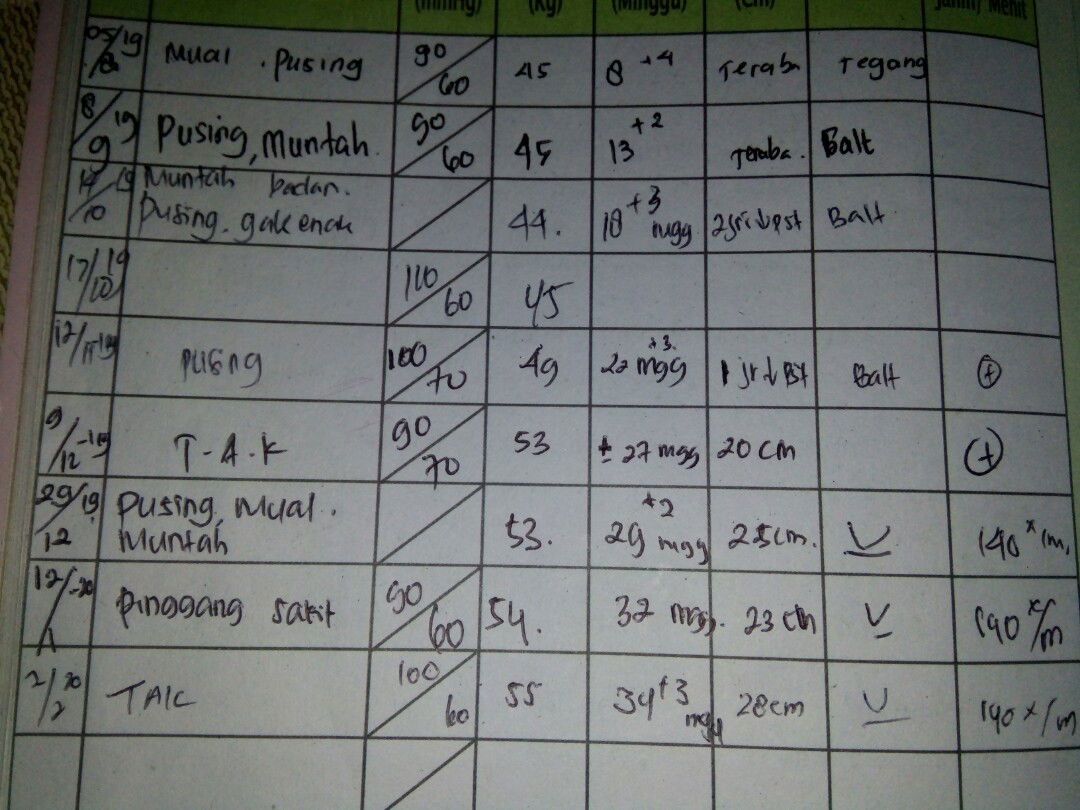 (mmHg) (Kg) (Minggu) (Cm) Menit
05/19 8 Mual . Pusing 90/60 45 8 +4 Teraba Tegang
8/9 19 Pusing, Muntah. 90/60 45 13 +2 Teraba. Balt
14/10 19 Muntah badan.
Pusing. gak enak 44. 18 +3 mgg 2jri↓pst Balt
17/10 19 110/60 45
12/11-19 Pusing 100/70 49 22 +3 mgg 1 jr↓pst Balt (+)
9/12-19 T-A-K 90/70 53 ± 27 mgg 20 cm (+)
29/12 19 Pusing, Mual.
Muntah 53. 29 +2 mgg 25cm. U 140 x/m,
12/1-20 Pinggang sakit 90/60 54. 32 mgg. 23 cm U 140 x/m
2/2 20 TAK 100/60 55 34+3 mgg 28cm U 140 x/m